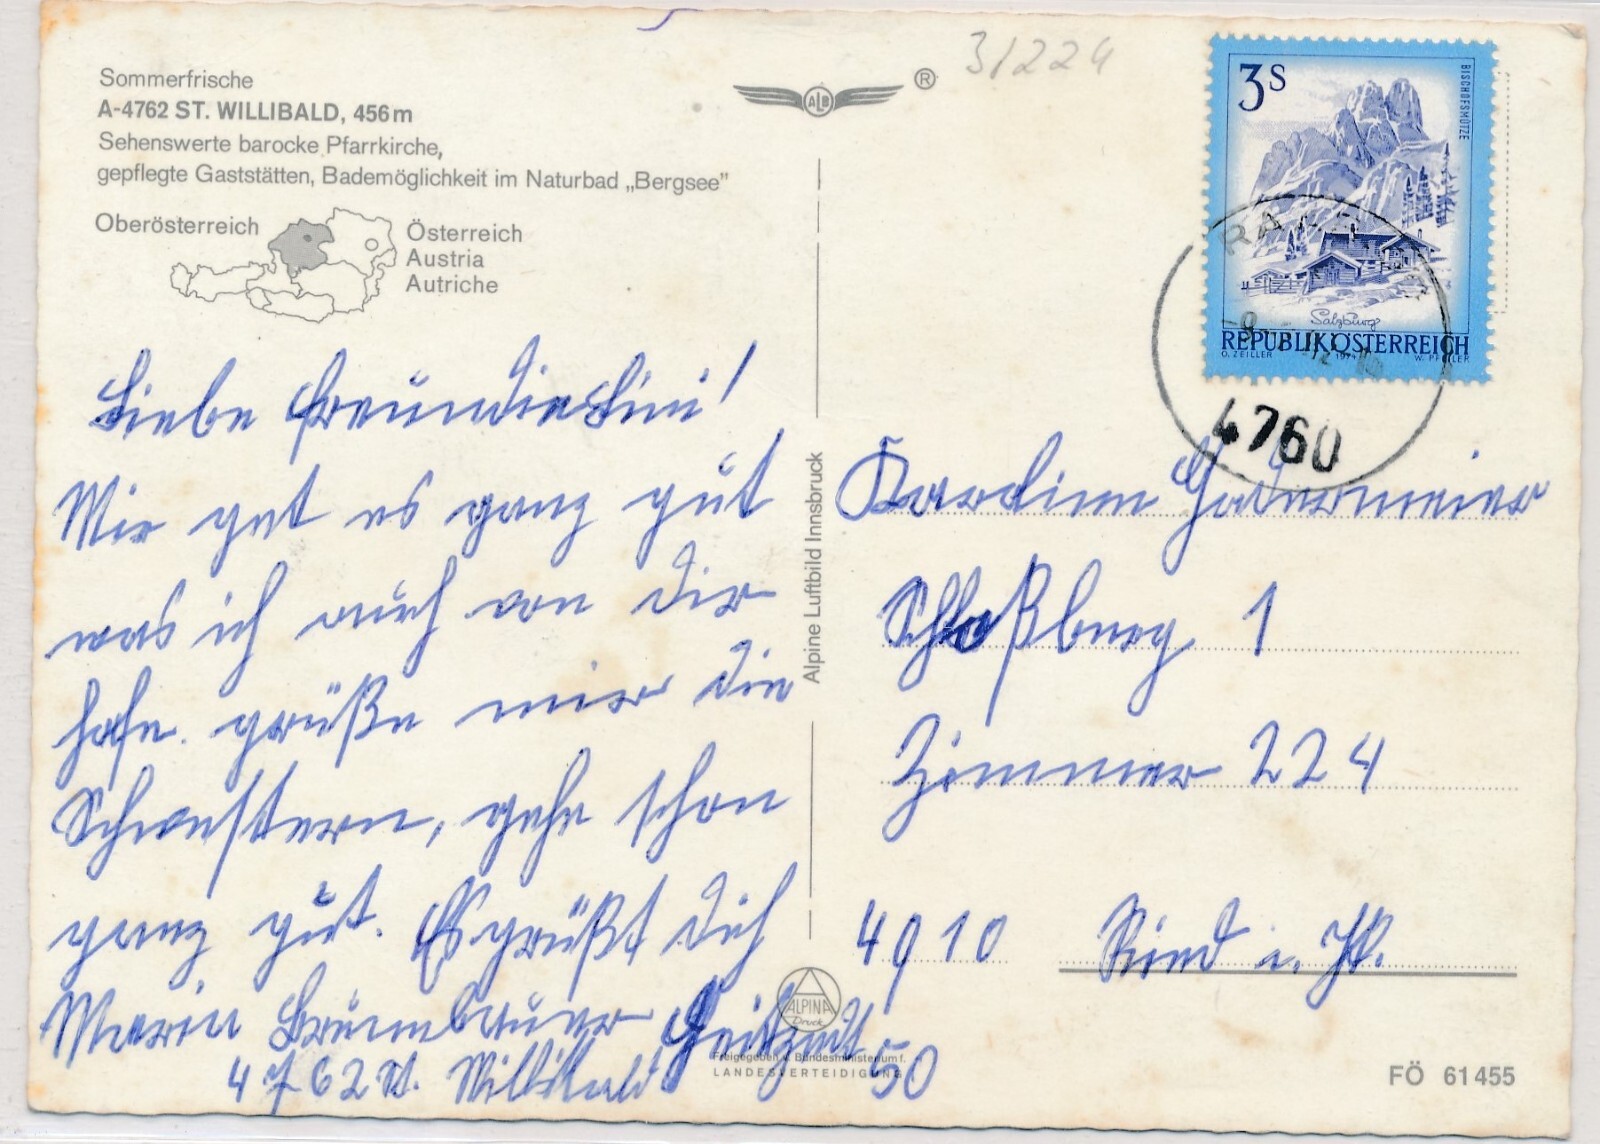 Sommerfrische
A-4762 ST. WILLIBALD, 456 m
Sehenswerte barocke Pfarrkirche,
gepflegte Gaststätten, Bademöglichkeit im Naturbad „Bergsee"
Oberösterreich
Österreich
Austria
Autriche
ALB ®
31224
3 S
BISCHOFSMÜTZE
Salzburg
REPUBLIK ÖSTERREICH
O. ZEILLER
W. PFEILER
4760
Liebe Freundin Lini!
Mir get es ganz gut
was ich auch von dir
hofe. grüße mir die
Schwestern, gehe schon
ganz gut. Es grüßt dich
Maria Brunnbauer
4762 St. Willibald 50
Alpine Luftbild Innsbruck
ALPINA
Druck
Freigegeben v. Bundesministerium f.
LANDESVERTEIDIGUNG
Karoline
Schloßberg 1
Zimmer 224
4910 Ried i. Ik.
FÖ 61 455